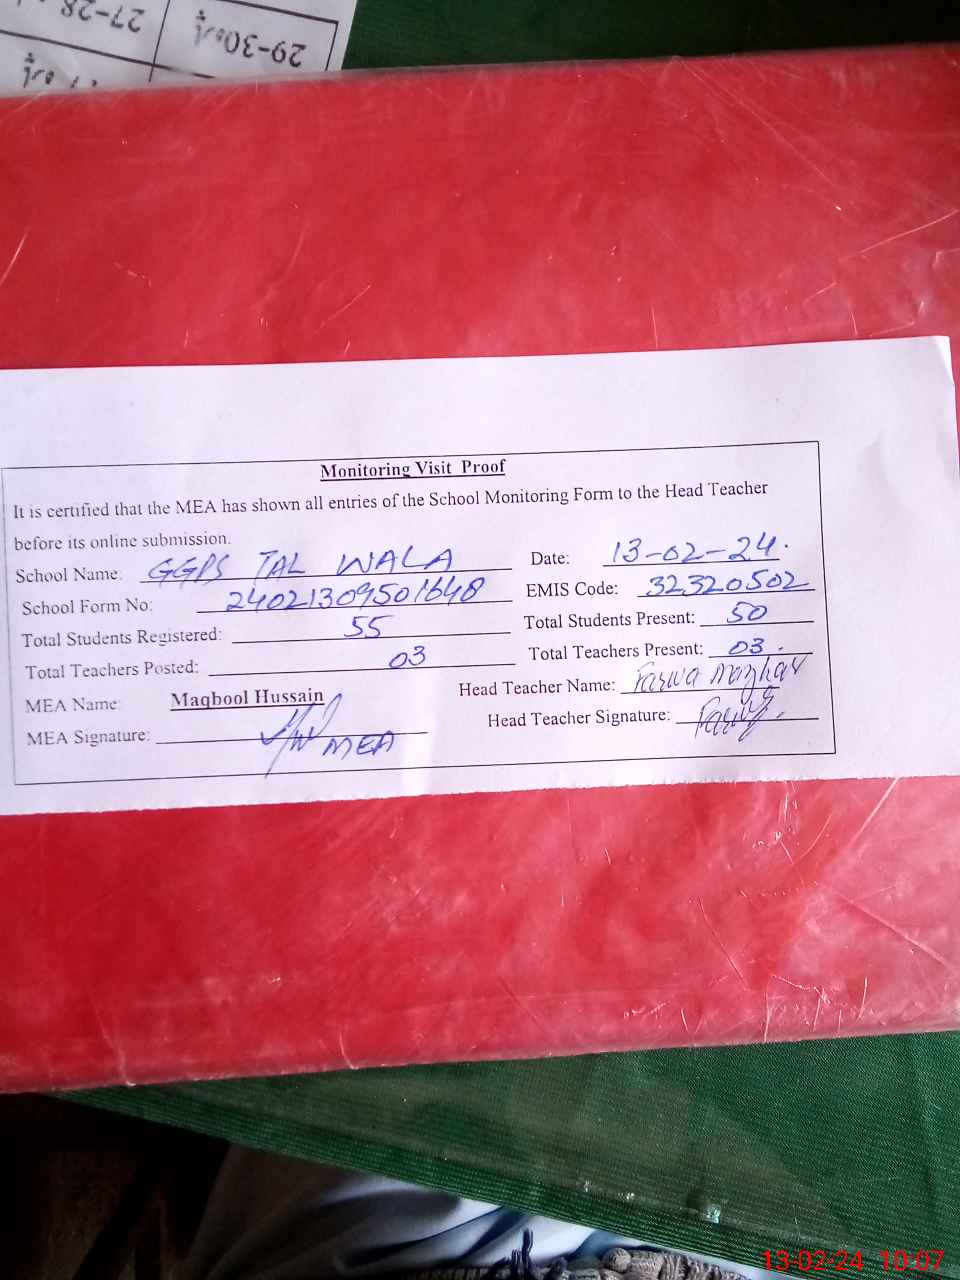 27-28
29-30
Monitoring Visit Proof
It is certified that the MEA has shown all entries of the School Monitoring Form to the Head Teacher
before its online submission.
School Name: GGPS TAL WALA Date: 13-02-24.
School Form No: 24021309501648 EMIS Code: 32320502
Total Students Registered: 55 Total Students Present: 50
Total Teachers Posted: 03 Total Teachers Present: 03.
MEA Name: Maqbool Hussain Head Teacher Name: Farwa mazhar
MEA Signature: MEA Head Teacher Signature:
13-02-24 10:07